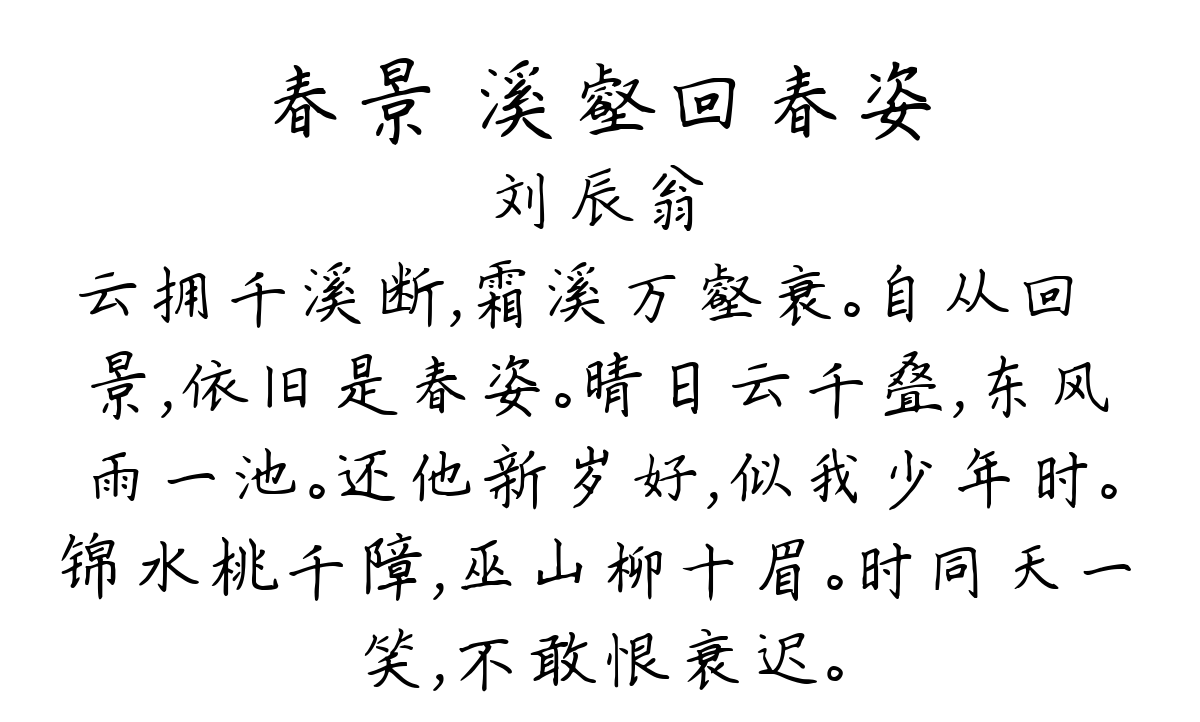 春景 溪壑回春姿
刘辰翁
云拥千溪断,霜溪万壑衰。自从回
景,依旧是春姿。晴日云千叠,东风
雨一池。还他新岁好,似我少年时。
锦水桃千障,巫山柳十眉。时同天一
笑,不敢恨衰迟。